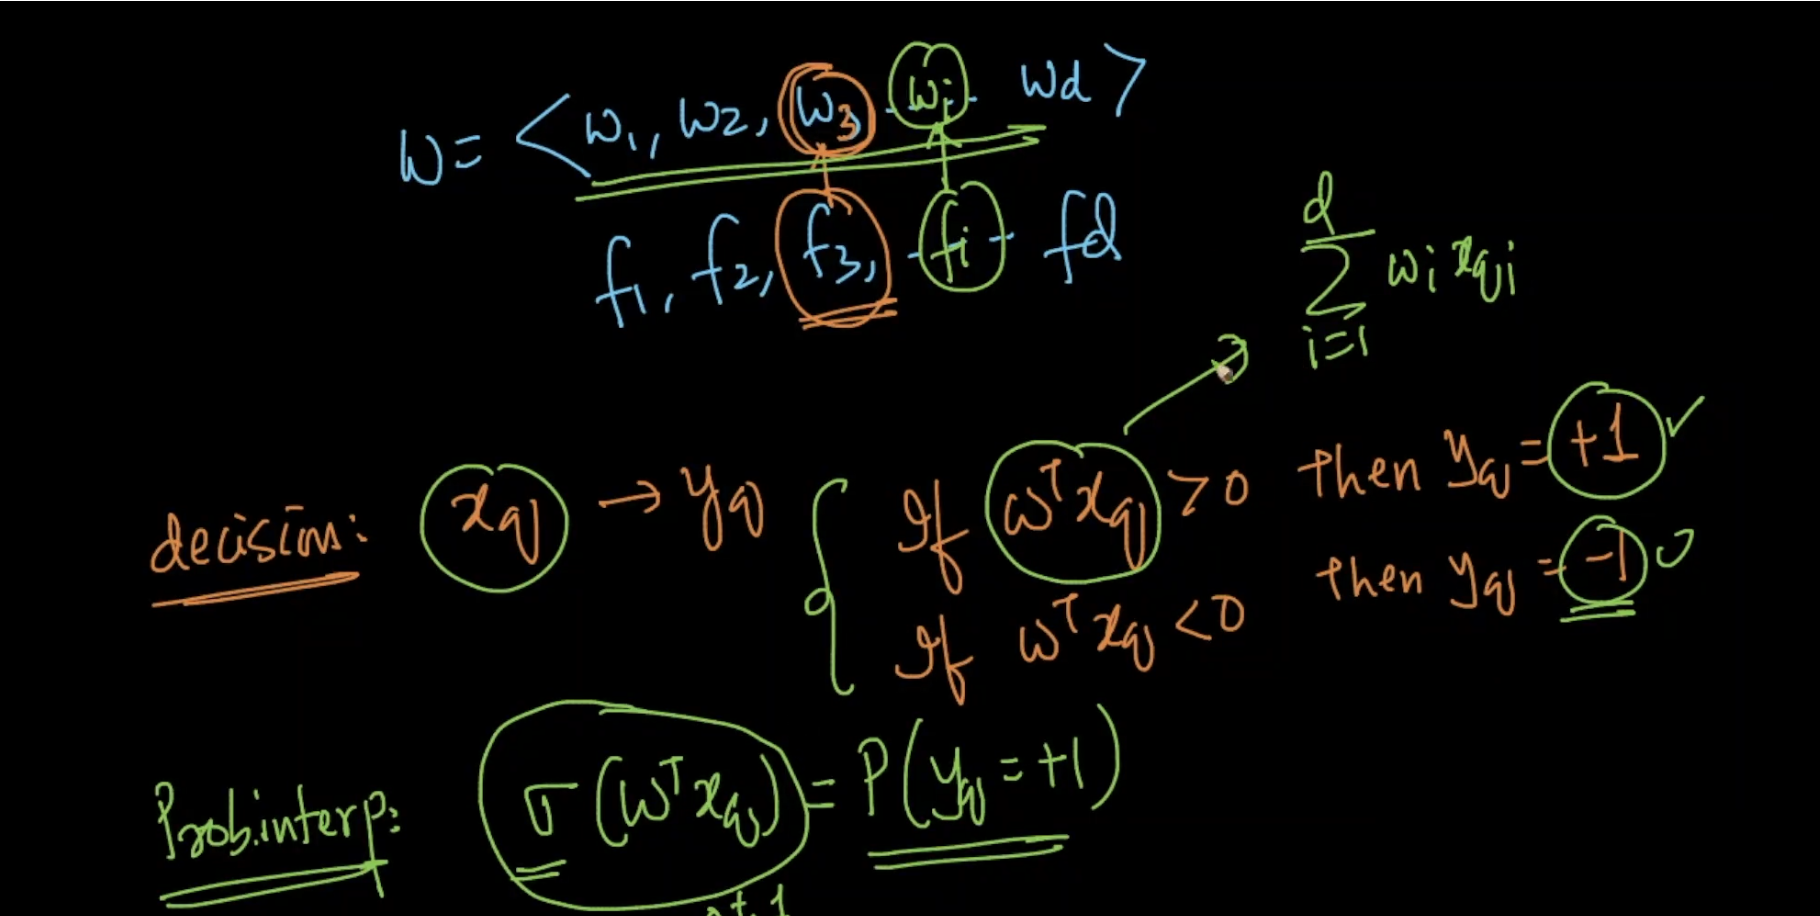 W = < w1, w2, w3 - wi - - wd >
f1, f2, f3, - fi - fd
d
Σ wi xqi
i=1
decision: xq → yq { If wᵀxq > 0 then yq = +1 ✓
If wᵀxq < 0 then yq = -1
Prob.interp: σ(wᵀxq) = P(yq = +1)